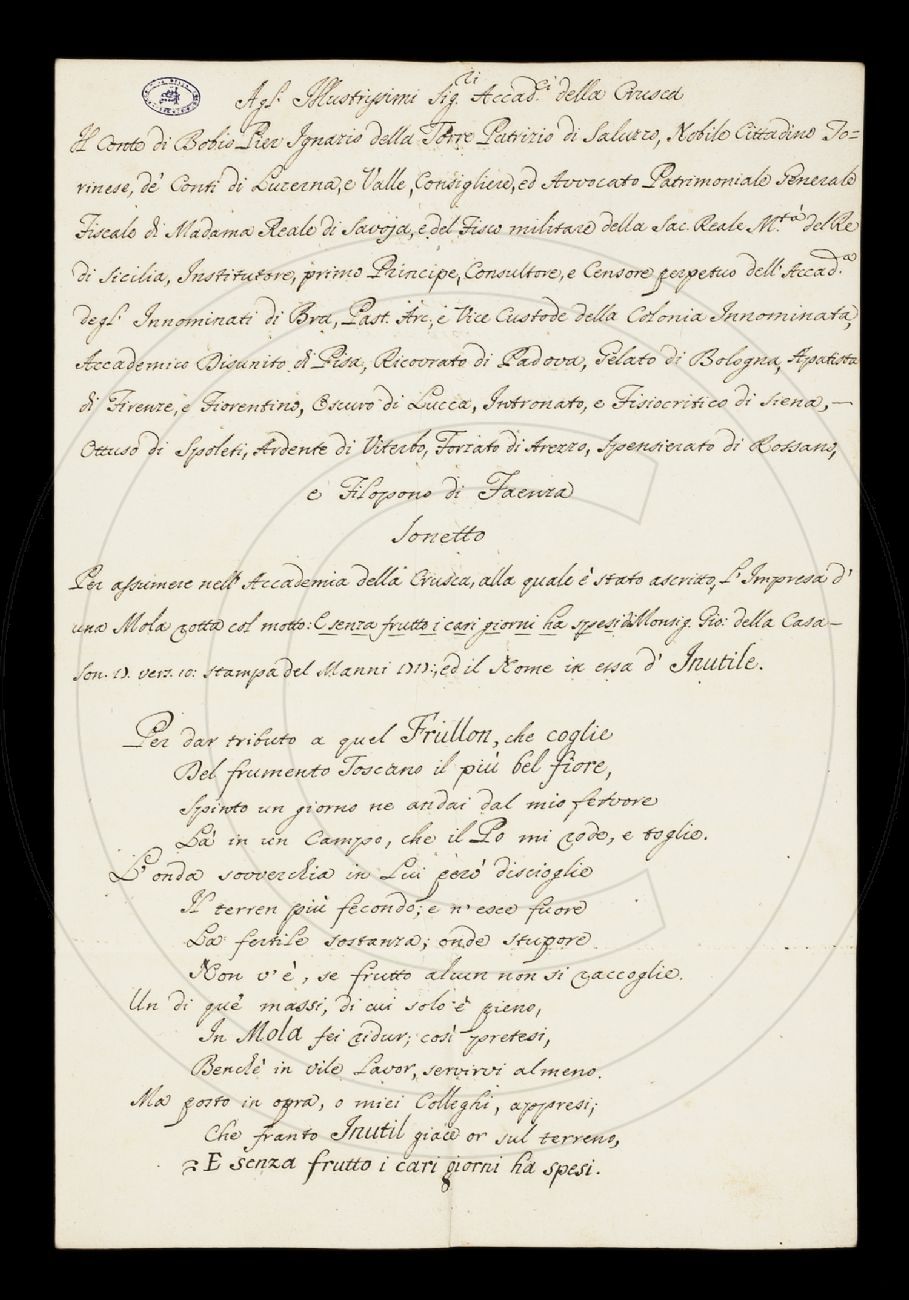 Agl' Illustrissimi Sig.ri Accad.i della Crusca
Il Conte di Bobio Pier Ignazio della Torre Patrizio di Saluzzo, Nobile Cittadino To=
rinese, de' Conti di Luzerna, e Valle, Consigliere, ed Avvocato Patrimoniale Generale
Fiscale di Madama Reale di Savoja, e del Fisco militare della Sac. Reale M.tà del Re
di Sicilia, Institutore, primo Principe, Consultore, e Censore perpetuo dell' Accad.a
degl' Innominati di Bra, Past. Arc., e Vice Custode della Colonia Innominata,
Accademico Disunito di Pisa, Ricovrato di Padova, Gelato di Bologna, Apatista
di Firenze, e Fiorentino, Oscuro di Lucca, Intronato, e Fisiocritico di Siena, —
Ottuso di Spoleti, Ardente di Viterbo, Forzato di Arezzo, Spensierato di Rossano,
e Filopono di Faenza
Sonetto
Per assumere nell' Accademia della Crusca, alla quale è stato ascritto, L' Impresa d'
una Mola rotta col motto: E senza frutto i cari giorni ha spesi di Monsig. Gio: della Casa —
Son. 17. vers. 10: stampa del Manni 1717:, ed il Nome in essa d' Inutile.
Per dar tributo a quel Frullon, che coglie
Del frumento Toscano il più bel fiore,
Spinto un giorno ne andai dal mio fervore
Là in un Campo, che il Po mi rode, e toglie.
L' onda sovverchia in Lui però discioglie
Il terren più fecondo; e n' esce fuore
La fertile sostanza; onde stupore
Non v' è, se frutto alcun non si raccoglie.
Un di què massi, di cui solo è pieno,
In Mola fei ridur; così pretesi,
Benchè in vile Lavor, servirvi almeno.
Ma posto in opra, o miei Colleghi, appresi;
Che franto Inutil giace or sul terreno,
E senza frutto i cari giorni ha spesi.